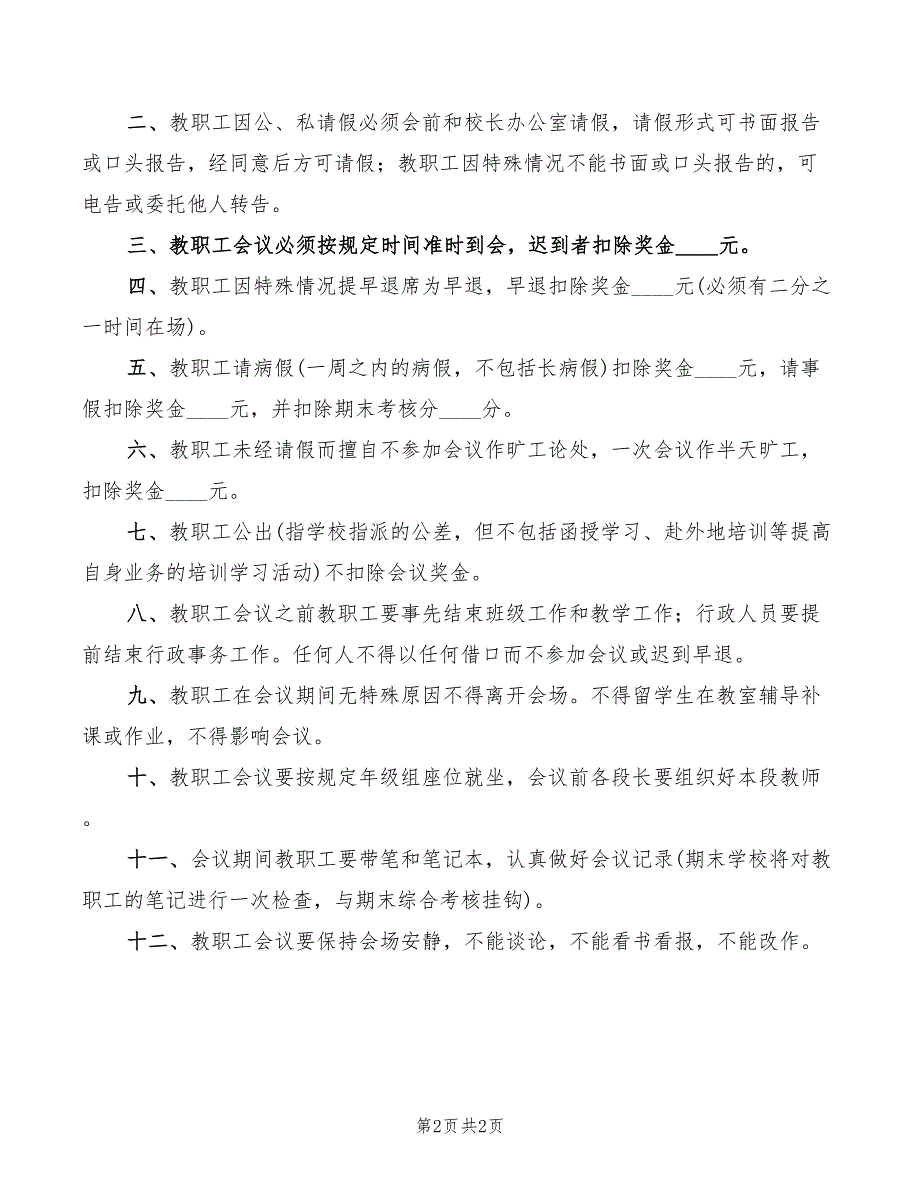 二、教职工因公、私请假必须会前和校长办公室请假，请假形式可书面报告
或口头报告，经同意后方可请假；教职工因特殊情况不能书面或口头报告的，可
电告或委托他人转告。
三、教职工会议必须按规定时间准时到会，迟到者扣除奖金____元。
四、教职工因特殊情况提早退席为早退，早退扣除奖金____元(必须有二分之
一时间在场)。
五、教职工请病假(一周之内的病假，不包括长病假)扣除奖金____元，请事
假扣除奖金____元，并扣除期末考核分____分。
六、教职工未经请假而擅自不参加会议作旷工论处，一次会议作半天旷工，
扣除奖金____元。
七、教职工公出(指学校指派的公差，但不包括函授学习、赴外地培训等提高
自身业务的培训学习活动)不扣除会议奖金。
八、教职工会议之前教职工要事先结束班级工作和教学工作；行政人员要提
前结束行政事务工作。任何人不得以任何借口而不参加会议或迟到早退。
九、教职工在会议期间无特殊原因不得离开会场。不得留学生在教室辅导补
课或作业，不得影响会议。
十、教职工会议要按规定年级组座位就坐，会议前各段长要组织好本段教师
。
十一、会议期间教职工要带笔和笔记本，认真做好会议记录(期末学校将对教
职工的笔记进行一次检查，与期末综合考核挂钩)。
十二、教职工会议要保持会场安静，不能谈论，不能看书看报，不能改作。
第2页 共2页